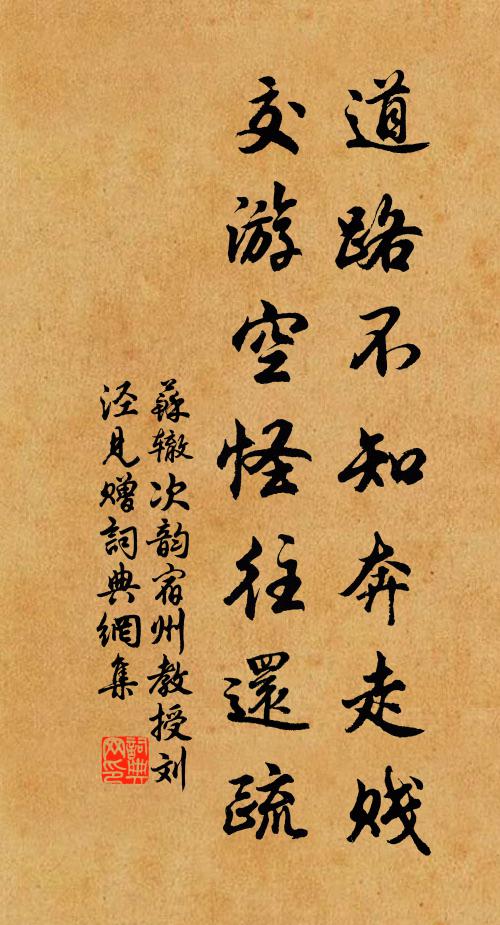 道路不知奔走贱
交游空怪往還疏
蘇辙次韵宿州教授刘
泾見赠詞典網集
詞典
网印